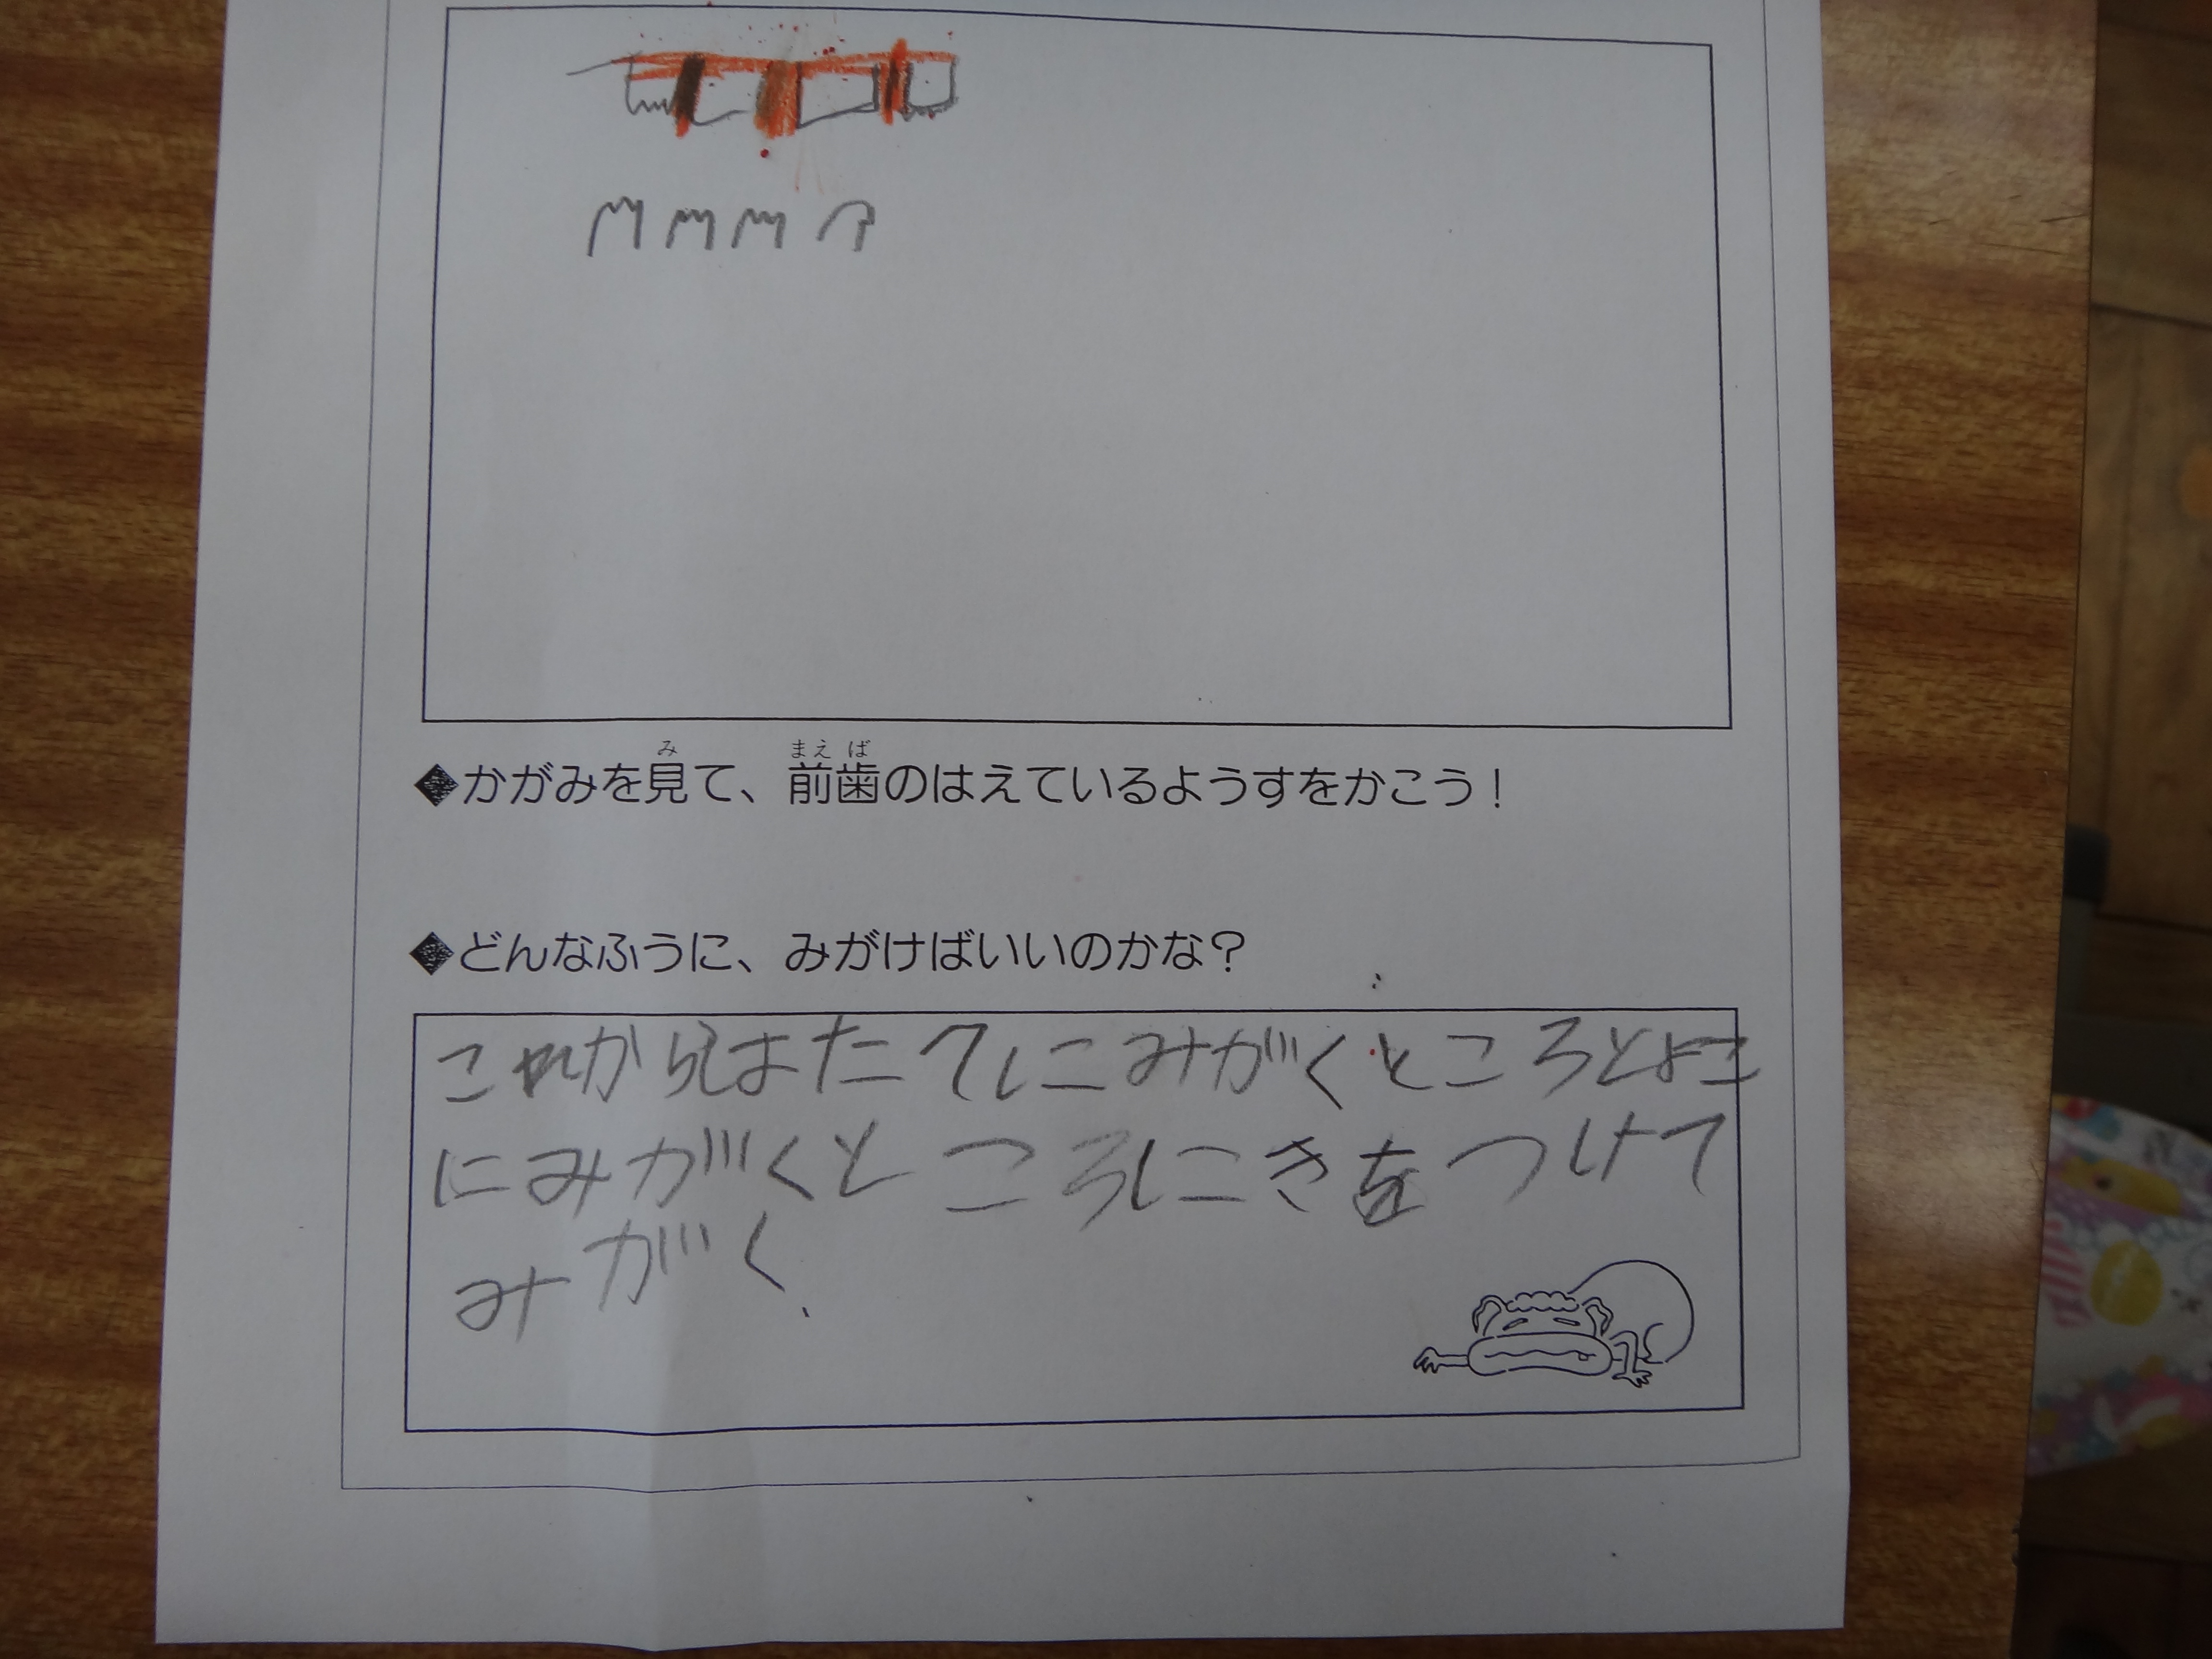 ◆かがみを見て、前歯のはえているようすをかこう！
◆どんなふうに、みがけばいいのかな？
これからはたてにみがくところとよこ
にみがくところにきをつけて
みがく.